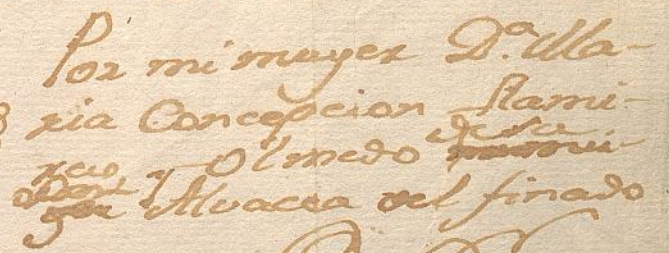 Por mi muger D.ª Ma-
ria Concepcion Rami-
rez y Olmedo
Alvacea del finado